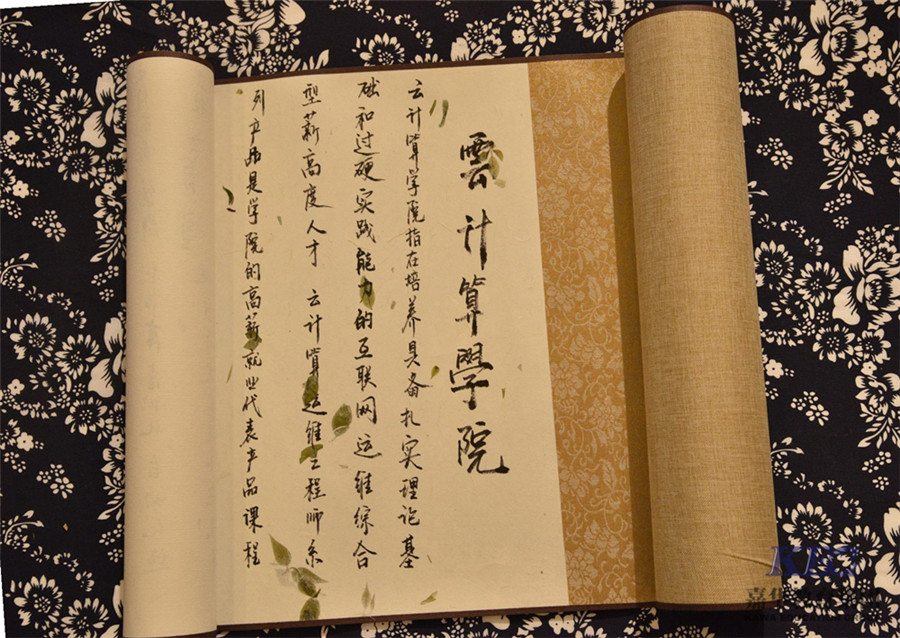 雲计算學院
云计算学院指在培养具备扎实理论基
础和过硬实践能力的互联网运维综合
型薪高度人才 云计算运维工程师系
列产品是学院的高薪就业代表产品课程
KFG